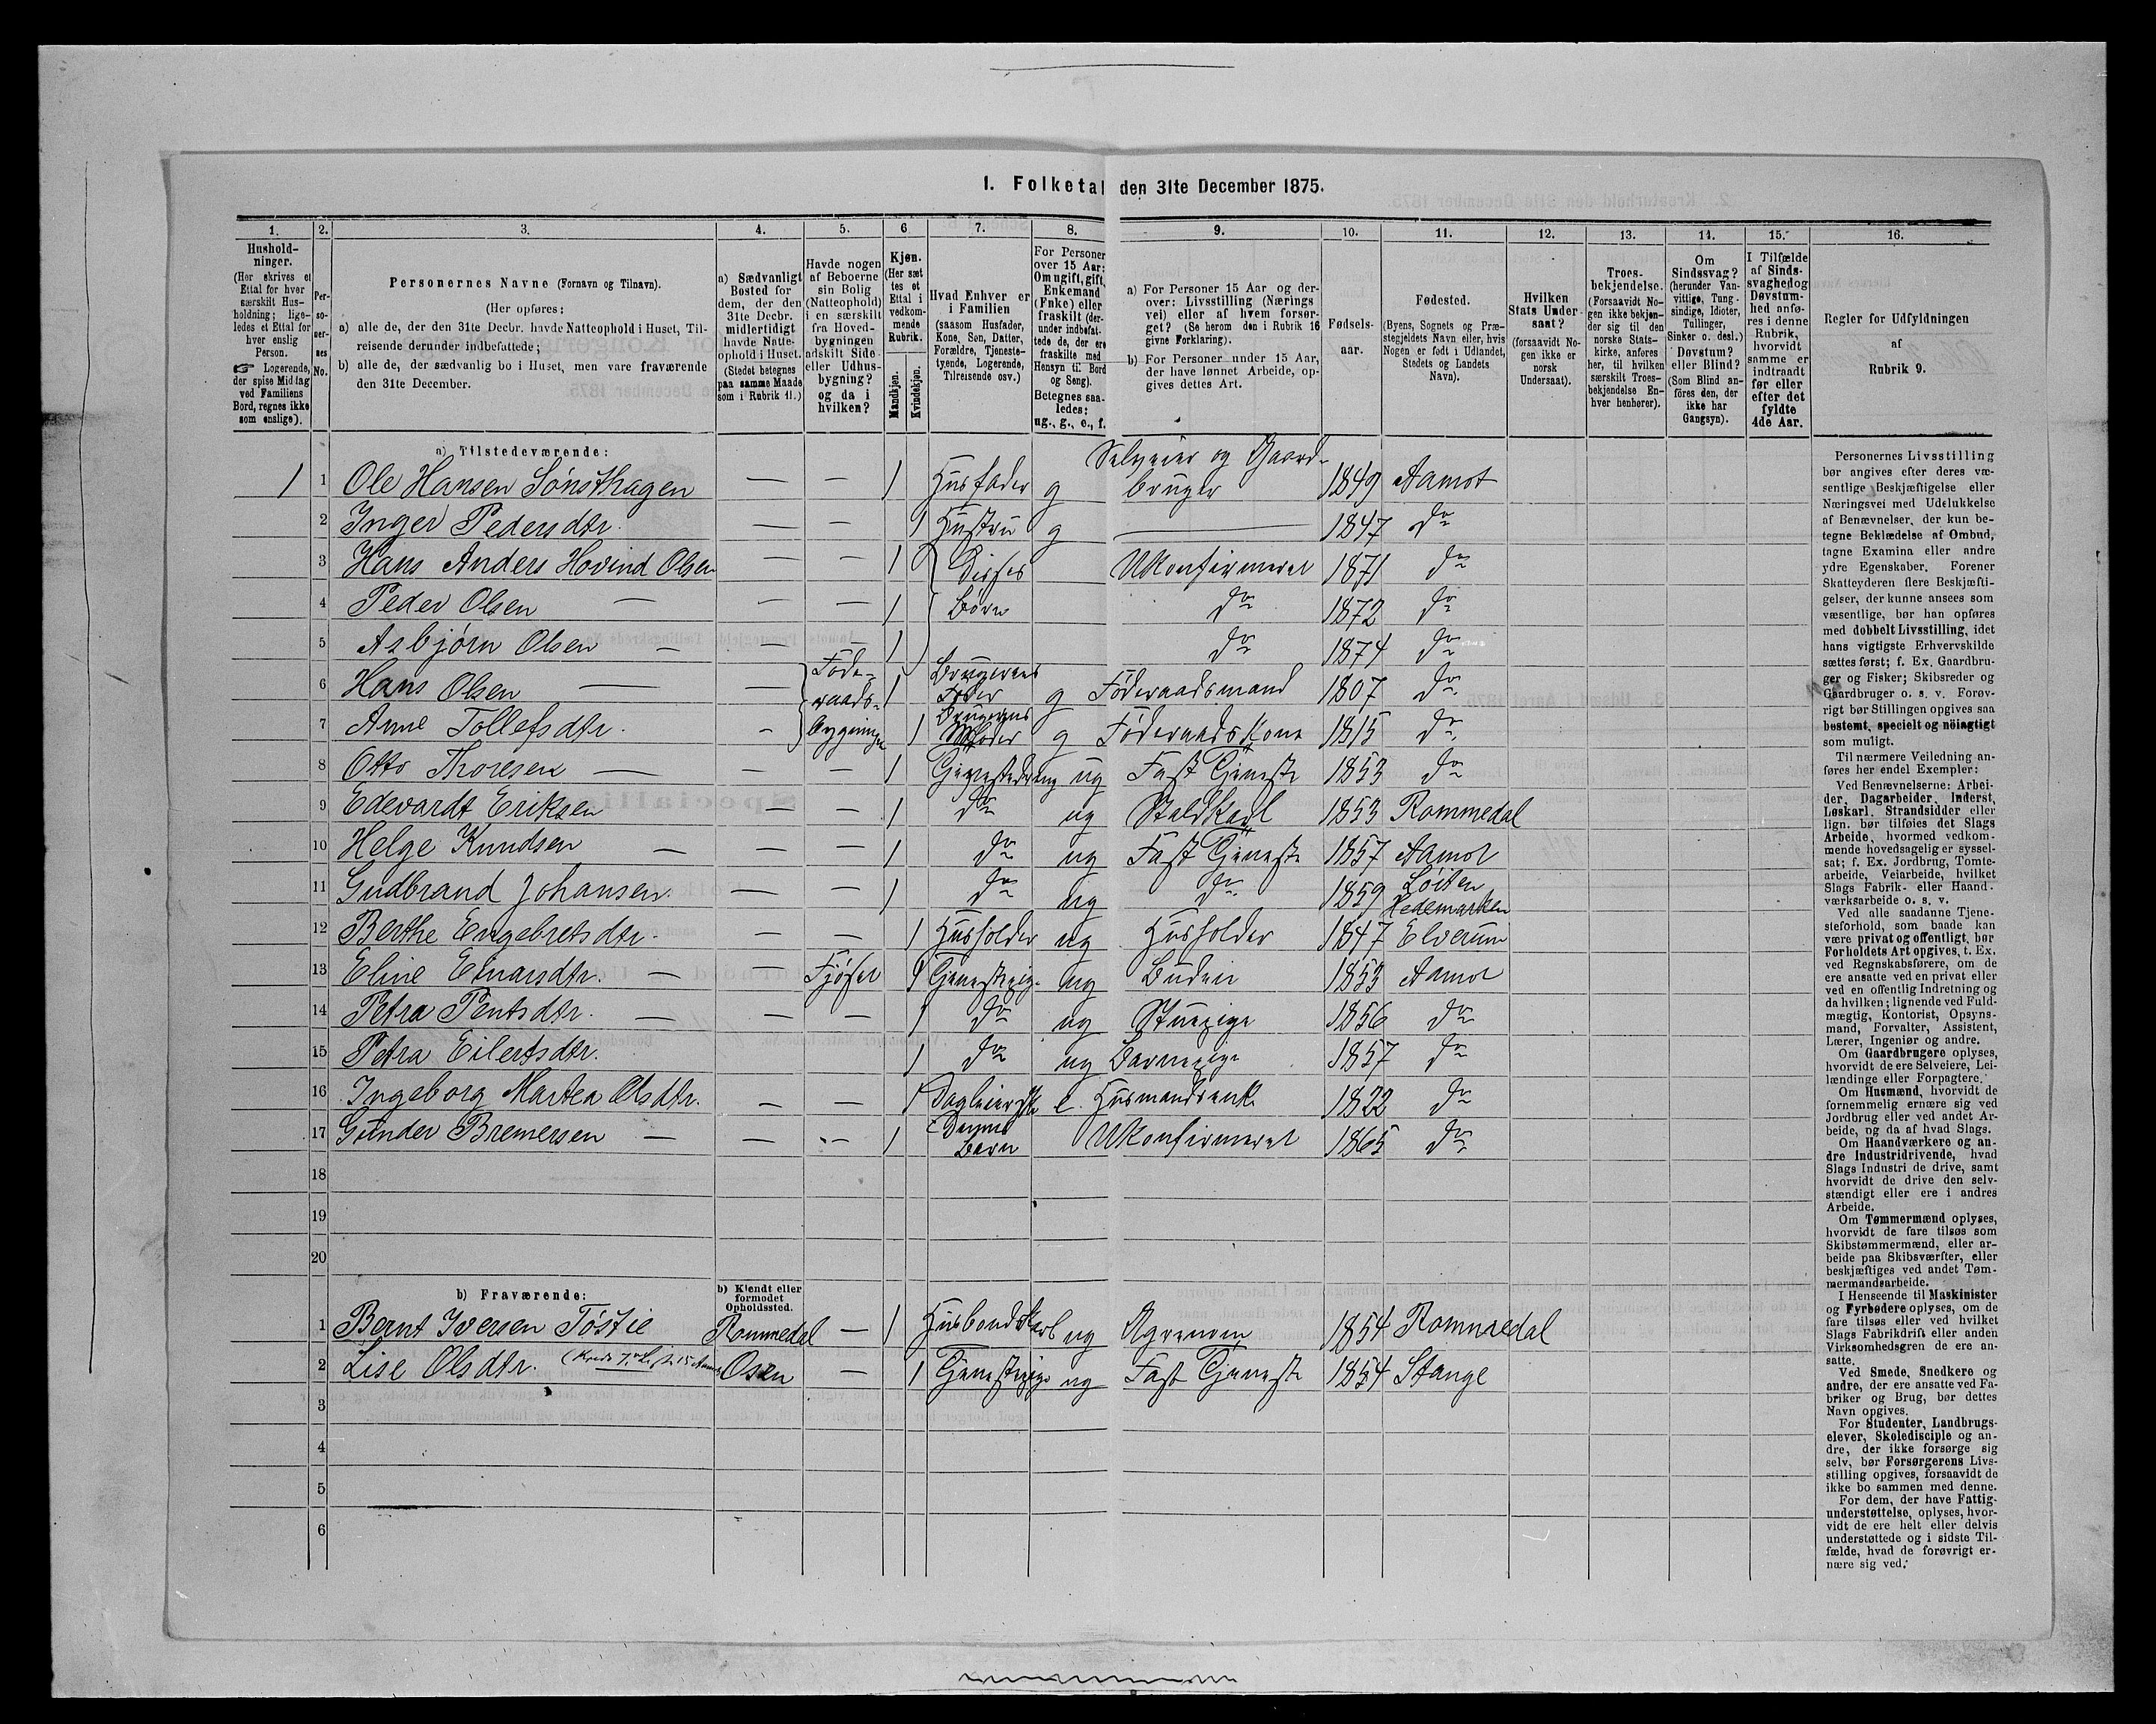 1. Folketal den 31te December 1875.
1. 2. 3. 4. 5. 6 7. 8. 9. 10. 11. 12. 13. 14. 15. 16.
Hushold-
ninger.
(Her skrives et
Ettal for hver
særskilt Hus-
holdning; lige-
ledes et Ettal for
hver enslig
Person.
☞ Logerende,
der spise Middag
ved Familiens
Bord, regnes ikke
som enslige).
Per-
so-
ner-
nes
No.
Personernes Navne (Fornavn og Tilnavn).
(Her opføres:
a) alle de, der den 31te Decbr. havde Natteophold i Huset, Til-
reisende derunder indbefattede;
b) alle de, der sædvanlig bo i Huset, men vare fraværende
den 31te December.
a) Sædvanligt
Bosted for
dem, der den
31te Decbr.
midlertidigt
havde Natte-
ophold i Huset.
(Stedet betegnes
paa samme Maade
som i Rubrik 11.)
Havde nogen
af Beboerne
sin Bolig
(Natteophold)
i en særskilt
fra Hoved-
bygningen
adskilt Side
eller Udhus-
bygning?
og da i
hvilken?
Kjøn.
(Her sæt
tes et
Ettal i
vedkom-
mende
Rubrik.
Mandkjøn.
Kvindekjøn.
Hvad Enhver er
i Familien
(saasom Husfader,
Kone, Søn, Datter,
Forældre, Tjeneste-
tyende, Logerende,
Tilreisende osv.)
For Personer
over 15 Aar:
Om ugift, gift,
Enkemand
(Enke) eller
fraskilt (der-
under indbefat-
tede de, der ere
fraskilte med
Hensyn til Bord
og Seng).
Betegnes saa-
ledes:
ug., g., e., f.
a) For Personer 15 Aar og der-
over: Livsstilling (Nærings
vei) eller af hvem forsør-
get? (Se herom den i Rubrik 16
givne Forklaring).
b) For Personer under 15 Aar,
der have lønnet Arbeide, op-
gives dettes Art.
Fødsels-
aar.
Fødested.
(Byens, Sognets og Præ-
stegjeldets Navn eller, hvis
Nogen er født i Udlandet,
Stedets og Landets
Navn).
Hvilken
Stats Under
saat?
(forsaavidt No-
gen ikke er
norsk
Undersaat).
Troes-
bekjendelse.
(Forsaavidt No-
gen ikke bekjen-
der sig til den
norske Stats-
kirke, anføres
her, til hvilken
særskilt Troes-
bekjendelse En-
hver henhører).
Om
Sindssvag?
(herunder Van-
vittige, Tung-
sindige, Idioter,
Tullinger,
Sinker o. desl.)
Døvstum?
eller Blind?
(Som Blind an-
føres den, der
ikke har
Gangsyn).
I Tilfælde
af Sinds-
svaghed og
Døvstum-
hed anfø-
res i denne
Rubrik,
hvorvidt
samme er
indtraadt
før eller
efter det
fyldte
4de Aar.
Regler for Udfyldningen
af
Rubrik 9.
a) Tilstedeværende:
1 1 Ole Hansen Sønsthagen — — 1 Husfader g Selveier og Gaard-
bruger 1849 Aamot
2 Inger Pedersdtr. — — 1 Hustru g — 1847 do
3 Hans Anders Hovind Olsen — — 1 Disses Ukonfirmeret 1871 do
4 Peder Olsen — — — 1 Børn do 1872 do
5 Asbjørn Olsen — — — 1 do 1874 do
6 Hans Olsen — — Føde- 1 Brugerens
Fader g Föderaadsmand 1807 do
raads-
7 Anne Tollefsdtr. - bygningen 1 Brugerens
Moder g Föderaadskone 1815 do
8 Otto Thoresen — — — 1 Tjenestedreng ug Fast Tjeneste 1853 do
9 Edevardt Eriksen — — 1 do ug Staldkarl 1853 Rommedal
10 Helge Knudsen — — — 1 do ug Fast Tjeneste 1857 Aamot
11 Gudbrand Johansen. — — 1 do ug do 1859 Løiten
Hedemarken
12 Berthe Engebretsdtr. — — 1 Husholder ug Husholder 1847 Elverum
13 Eline Einarsdtr. — — Fjøset 1 Tjenestepige ug Budeie 1853 Aamot
14 Petra Pentsdtr. — — — 1 do ug Stuepige 1856 do
15 Petra Eilertsdtr. 1 do ug Barnepige 1857 do
16 Ingeborg Martea Olsdtr. — — 1 Dagleierske e. Husmandsenke 1822 do
17 Gunder Bremersen — — — 1 Dennes
Barn Ukonfirmeret 1865 do
18
19
20
b) Fraværende:
b) Kjendt eller
formodet
Opholdssted.
1 Bernt Iversen Töstie Rommedal — 1 Husbondskarl ug Agronom 1854 Rommedal
2 Lise Olsdtr. Osen — 1 Tjenestepige ug Fast Tjeneste 1854 Stange
3
4
5
6
Personernes Livsstilling
bør angives efter deres væ-
sentlige Beskjæftigelse eller
Næringsvei med Udelukkelse
af Benævnelser, der kun be-
tegne Beklædelse af Ombud,
tagne Examina eller andre
ydre Egenskaber. Forener
Skatteyderen flere Beskjæfti-
gelser, der kunne ansees som
væsentlige, bør han opføres
med dobbelt Livsstilling, idet
hans vigtigste Erhvervskilde
sættes først; f. Ex. Gaardbru-
ger og Fisker; Skibsreder og
Gaardbruger o. s. v. Forøv-
rigt bør Stillingen opgives saa
bestemt, specielt og nöiagtigt
som muligt.
Til nærmere Veiledning an-
føres her endel Exempler:
Ved Benævnelserne: Arbei-
der, Dagarbeider, Inderst,
Løskarl, Strandsidder eller
lign. bør tilføies det Slags
Arbeide, hvormed vedkom-
mende hovedsagelig er syssel-
sat; f. Ex. Jordbrug, Tomte-
arbeide, Veiarbeide, hvilket
Slags Fabrik- eller Haand-
værksarbeide o. s. v.
Ved alle saadanne Tjene-
steforhold, som baade kan
være privat og offentligt, bør
Forholdets Art opgives, t. Ex.
ved Regnskabsførere, om de
ere ansatte ved en privat eller
ved en offentlig Indretning og
da hvilken; lignende ved Fuld-
mægtig, Kontorist, Opsyns-
mand, Forvalter, Assistent,
Lærer, Ingeniør og andre.
Om Gaardbrugere oplyses,
hvorvidt de ere Selveiere, Lei-
lændinge eller Forpagtere.
Om Husmænd, hvorvidt de
fornemmelig ernære sig ved
Jordbrug eller ved andet Ar-
beide, og da af hvad Slags.
Om Haandværkere og an-
dre Industridrivende, hvad
Slags Industri de drive, samt
hvorvidt de drive den selv-
stændigt eller ere i andres
Arbeide.
Om Tømmermænd oplyses,
hvorvidt de fare tilsøs som
Skibstømmermænd, eller ar-
beide paa Skibsværfter, eller
beskjæftiges ved andet Tøm-
mermandsarbeide.
I Henseende til Maskinister
og Fyrbødere oplyses, om de
fare tilsøs eller ved hvilket
Slags Fabrikdrift eller anden
Virksomhedsgren de ere an-
satte.
Ved Smede, Snedkere og
andre, der ere ansatte ved Fa-
briker og Brug, bør dettes
Navn opgives.
For Studenter, Landbrugs-
elever, Skoledisciple og an-
dre, der ikke forsørge sig
selv, bør Forsørgerens Livs-
stilling opgives, forsaavidt de
ikke bo sammen med denne.
For dem, der have Fattig-
understøttelse, oplyses, hvor-
vidt de ere helt eller delvis
understøttede og i sidste Til-
fælde, hvad de forøvrigt er-
nære sig ved.